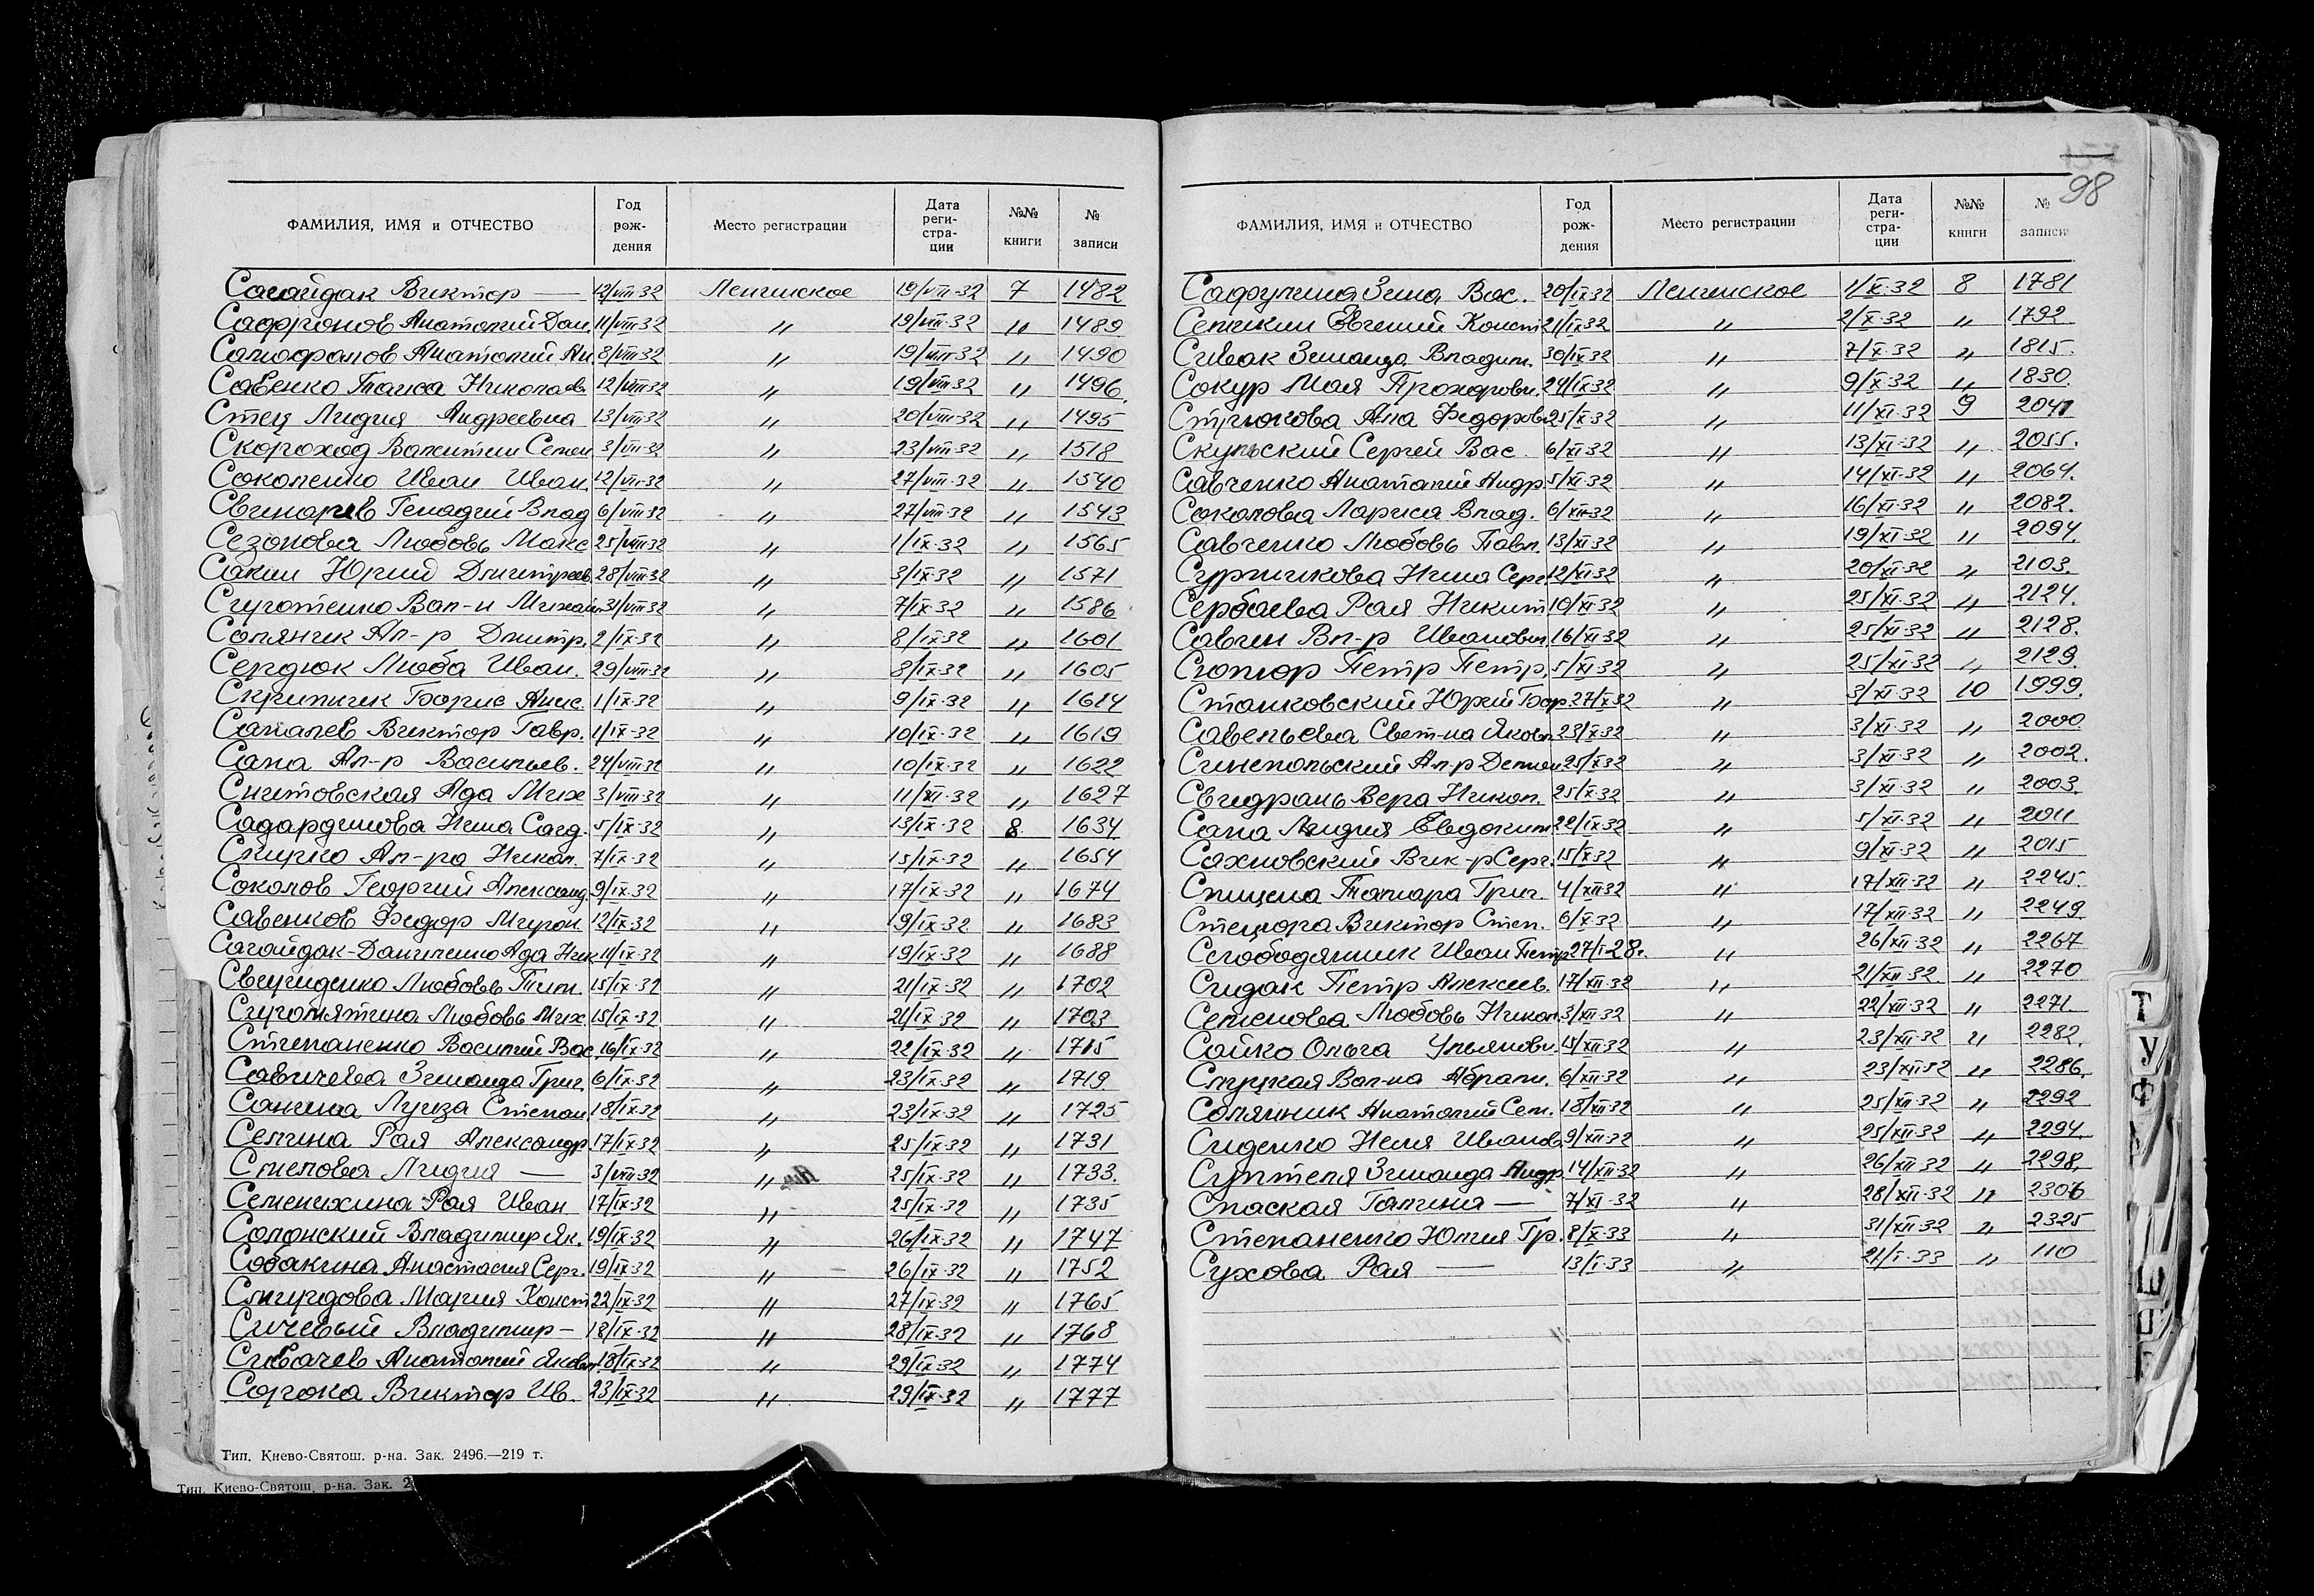 98
ФАМИЛИЯ, ИМЯ и ОТЧЕСТВО Год рож- дения Место регистрации Дата реги- стра- ции №№ книги № записи
Сагайдак Виктор — 12/VIII 32 Ленинское 19/VIII-32 7 1482
Сафронов Анатолий Дан. 11/VIII 32 〃 19/VIII-32 〃 1489
Анатолий Ан. 8/VIII 32 〃 19/VIII 32 〃 1490
Савенко Таиса Николаев 12/VIII 32 〃 19/VIII 32 〃 1496
Стец Лидия Андреевна 13/VIII 32 〃 20/VIII-32 〃 1495
Скороход Валентин Семен 3/VIII-32 〃 23/VIII-32 〃 1518
Соколенко Иван Иван. 12/VII-32 〃 27/VIII-32 〃 1540
Свинарев Генадий Влад 6/VIII 32 〃 27/VIII-32 〃 1543
Сезонова Любовь Макс 25/VIII 32 〃 1/IX-32 〃 1565
Сакин Юрий Дмитриев. 28/VIII-32 〃 3/IX-32 〃 1571
Вал-н Михайл. 31/VIII-32 〃 7/IX-32 〃 1586
Соляник Ал-р Дмитр. 2/IX-32 〃 8/IX-32 〃 1601
Сердюк Люба Иван. 29/VIII-32 〃 8/IX-32 〃 1605
Скрипник Борис Анис. 1/IX-32 〃 9/IX-32 〃 1614
Виктор Гавр. 1/IX-32 〃 10/IX-32 〃 1619
Ал-р Васильев. 24/VIII 32 〃 10/IX-32 〃 1622
Снитовская Ада Мих 3/VIII-32 〃 11/XI-32 〃 1627
Садардинова Нина Сагд. 5/IX-32 〃 13/IX-32 8 1634
Скирко Ал-ра Никол. 7/IX-32 〃 15/IX-32 〃 1654
Соколов Георгий Александ. 9/IX-32 〃 17/IX-32 〃 1674
Савенков Федор Мирон. 12/IX-32 〃 19/IX-32 〃 1683
Сагайдак-Даниленко Ада Ник 11/IX-32 〃 19/IX-32 〃 1688
Свириденко Любовь 15/IX-32 〃 21/IX-32 〃 1702
Любовь Мих. 15/IX-32 〃 21/IX-32 〃 1703
Степаненко Василий Вас. 16/IX-32 〃 22/IX-32 〃 1715
Савичева Зинаида Григ. 6/IX-32 〃 23/IX-32 〃 1719
Санина Луиза Степан. 18/IX-32 〃 23/IX-32 〃 1725
Селина Рая Александр. 17/IX-32 〃 25/IX-32 〃 1731
Лидия — 3/VIII-32 〃 25/IX-32 〃 1733.
Семенихина Рая Иван 17/IX-32 〃 25/IX-32 〃 1735
Солонский Владимир Як. 19/IX-32 〃 26/IX-32 〃 1747
Собакина Анастасия Серг. 19/IX-32 〃 26/IX-32 〃 1752
Спиридова Мария Конст 22/IX-32 〃 27/IX-32 〃 1765
Сичевый Владимир — 18/IX-32 〃 28/IX-32 〃 1768
Сивачев Анатолий Яковл 18/IX-32 〃 29/IX-32 〃 1774
Сорока Виктор Ив. 23/IX-32 〃 29/IX-32 〃 1777
Тип. Киево-Святош. р-на. Зак. 2496.—219 т.
Тип. Киево-Святош. р-на. Зак. 2
ФАМИЛИЯ, ИМЯ и ОТЧЕСТВО Год рож- дения Место регистрации Дата реги- стра- ции №№ книги № записи
Сафулина Зина Вас. 20/IX 32 Ленинское 1/X-32 8 1781
Семикин Евгений Конст 21/IX 32 〃 2/X-32 〃 1792
Сивак Зинаида Владим. 30/IX 32 〃 7/X-32 〃 1815.
Сокур Мая Прохоровн. 24/IX 32 〃 9/X-32 〃 1830.
Стрюкова Ала Федоровн 25/X-32 〃 11/XI-32 9 2041
Скульский Сергей Вас. 6/XI-32 〃 13/XI-32 〃 2055.
Савченко Анатолий Андр. 5/XI-32 〃 14/XI-32 〃 2064.
Соколова Лариса Влад. 6/XII-32 〃 16/XI-32 〃 2082.
Савченко Любовь Павл. 13/XI-32 〃 19/XI-32 〃 2094.
Сурникова Нина Серг. 12/XI-32 〃 20/XI-32 〃 2103.
Сербаева Рая Никит 10/XI-32 〃 25/XI-32 〃 2124.
Савчин Вл-р Иванович 16/XI 32 〃 25/XI-32 〃 2128.
Петр Петр. 5/XI-32 〃 25/XI-32 〃 2129.
Станковский Юрий Бор. 27/X-32 〃 3/XI-32 10 1999.
Савельева Свет-на Яковл 23/X-32 〃 3/XI-32 〃 2000
Синепольский Ал-р Демьян 25/X-32 〃 3/XI-32 〃 2002.
Свидрань Вера Никол. 25/X-32 〃 3/XI-32 〃 2003.
Лидия Евдоким 22/IX-32 〃 5/XI-32 〃 2011
Сахновский Вик-р Серг. 15/X-32 〃 9/XI-32 〃 2015
Спицена Тамара Григ. 4/XII 32 〃 17/XII-32 〃 2245.
Стецюра Виктор Степ. 6/X-32 〃 17/XII-32 〃 2249
Слободянник Иван Петр 27/I-28. 〃 26/XII-32 〃 2267
Сидак Петр Алексеев. 17/XII-32 〃 21/XII-32. 〃 2270
Семенова Любовь Никол. 3/XII-32 〃 22/XII-32 〃 2271
Сойко Ольга Ульяновн. 15/XII-32 〃 23/XII-32 〃 2282.
Слуцкая Вал-на Абрам. 6/XII-32 〃 23/XII 32 〃 2286.
Солянник Анатолий Сем. 18/XII-32 〃 25/XII-32 〃 2292
Сиденко Неля Иванов. 9/XII-32 〃 25/XII-32 〃 2294.
Суптеля Зинаида Андр. 14/XII-32 〃 26/XII-32 〃 2298.
Спаская Галина — 7/XI-32 〃 28/XII-32 〃 2306
Степаненко Юлия Гр. 8/X-33 〃 31/XII-32 〃 2325
Сухова Рая — 13/I-33 〃 21/I-33 〃 110
Т
У
Ф
Ш